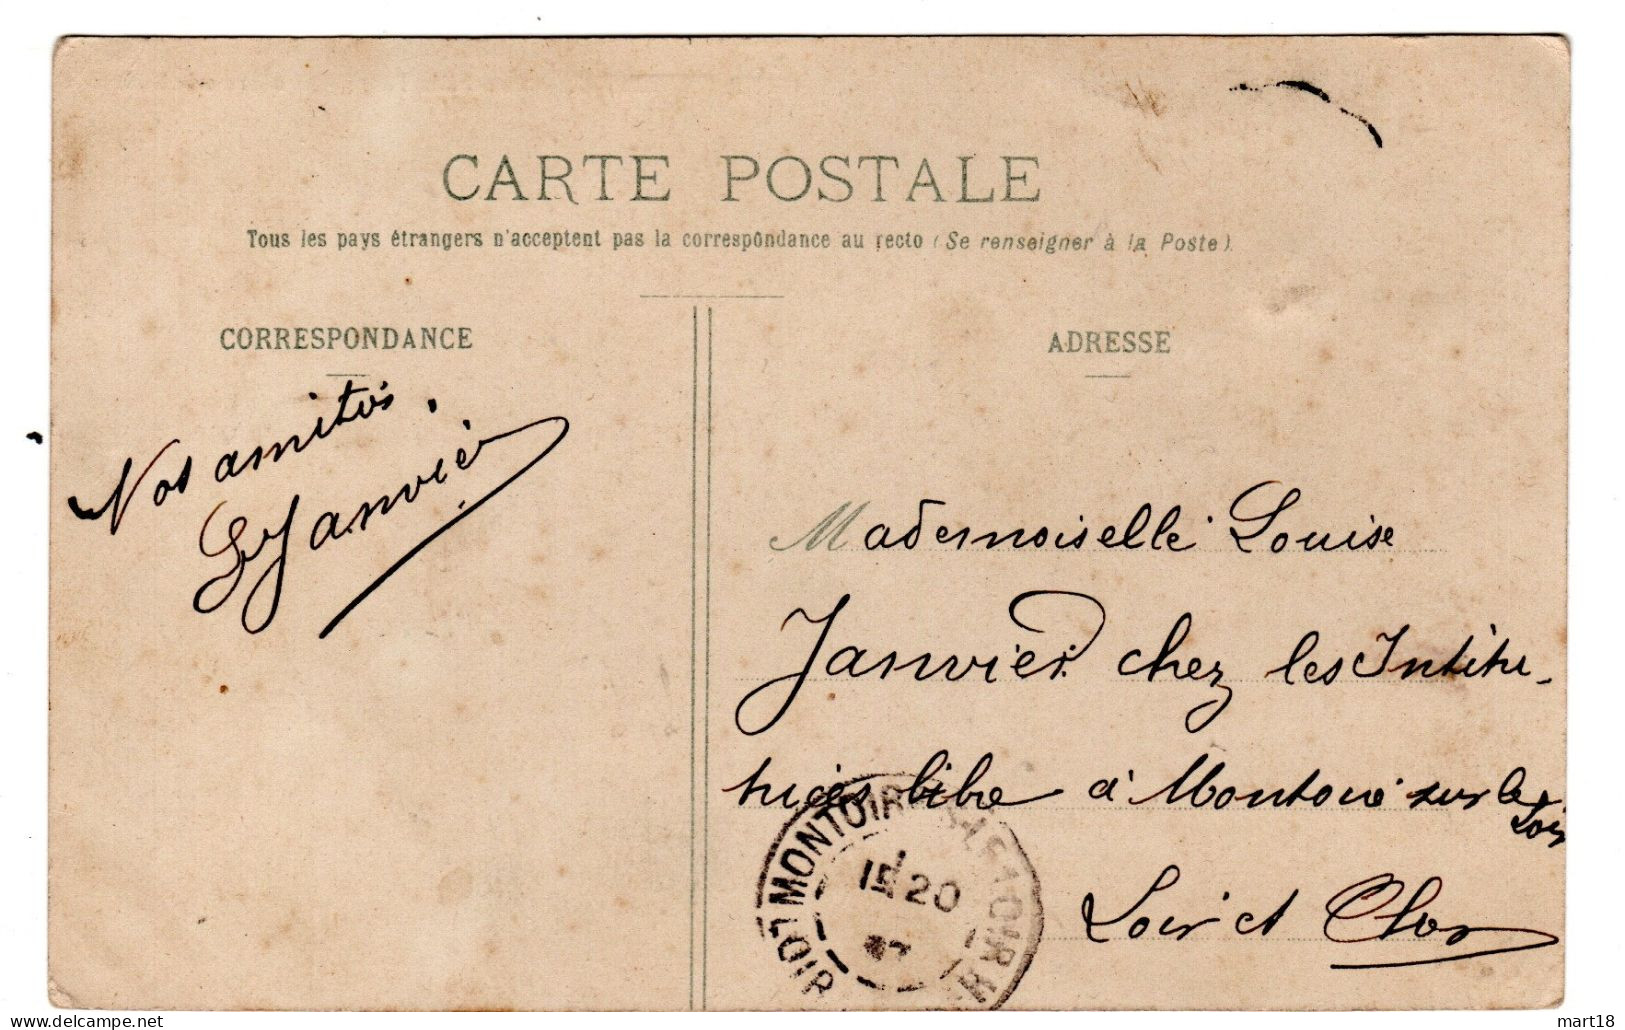 CARTE POSTALE
Tous les pays étrangers n'acceptent pas la correspondance au recto (Se renseigner à la Poste).
CORRESPONDANCE
ADRESSE
Nos amitiés.
Janvier
Mademoiselle Louise
Janvier chez les Institu-
trices libre à Montoire sur le
Loir
Loir et Cher
MONTOIR
15 20
mart18